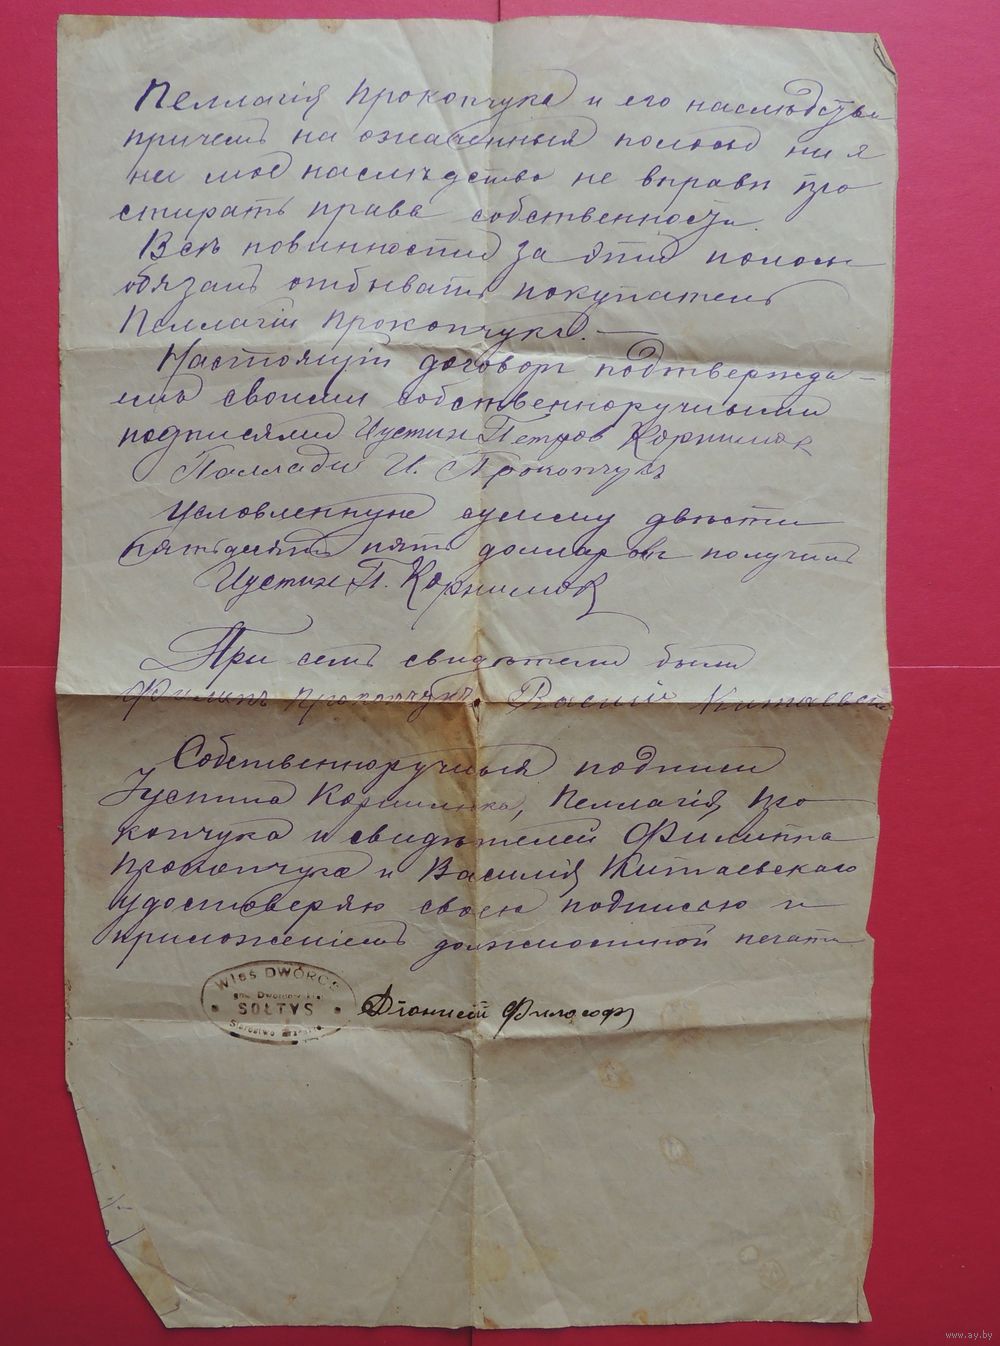 Пеллагія Прокопчука и его наслѣдство
причемъ на означенныя полосы ни я
ни мое наслѣдство не вправѣ про
стирать права собственности.
Всѣ повинности за эти полосы
обязанъ отбывать покупатель
Пеллагіи Прокопчука.—
Настоящій договоръ подтвержда-
емъ своими собственноручными
подписями Иустин Петров Корнилюк
Паллади И. Прокопчукъ
Условленную сумму двѣсти
пятьдесятъ пять долларовъ получилъ
Иустин П. Корнилюк
При семъ свидѣтели были
Филипъ Прокопчукъ Василий Китаевский
Собственноручныя подписи
Іустина Корнилюка, Пеллагія Про
копчука и свидѣтелей Филиппа
Прокопчука и Василія Китаевскаго
удостоверяю своею подписью и
приложеніемъ должностной печати
WIEŚ DWÓREC
SOŁTYS
Starostwo
Діонисій Философъ
www.ay.by